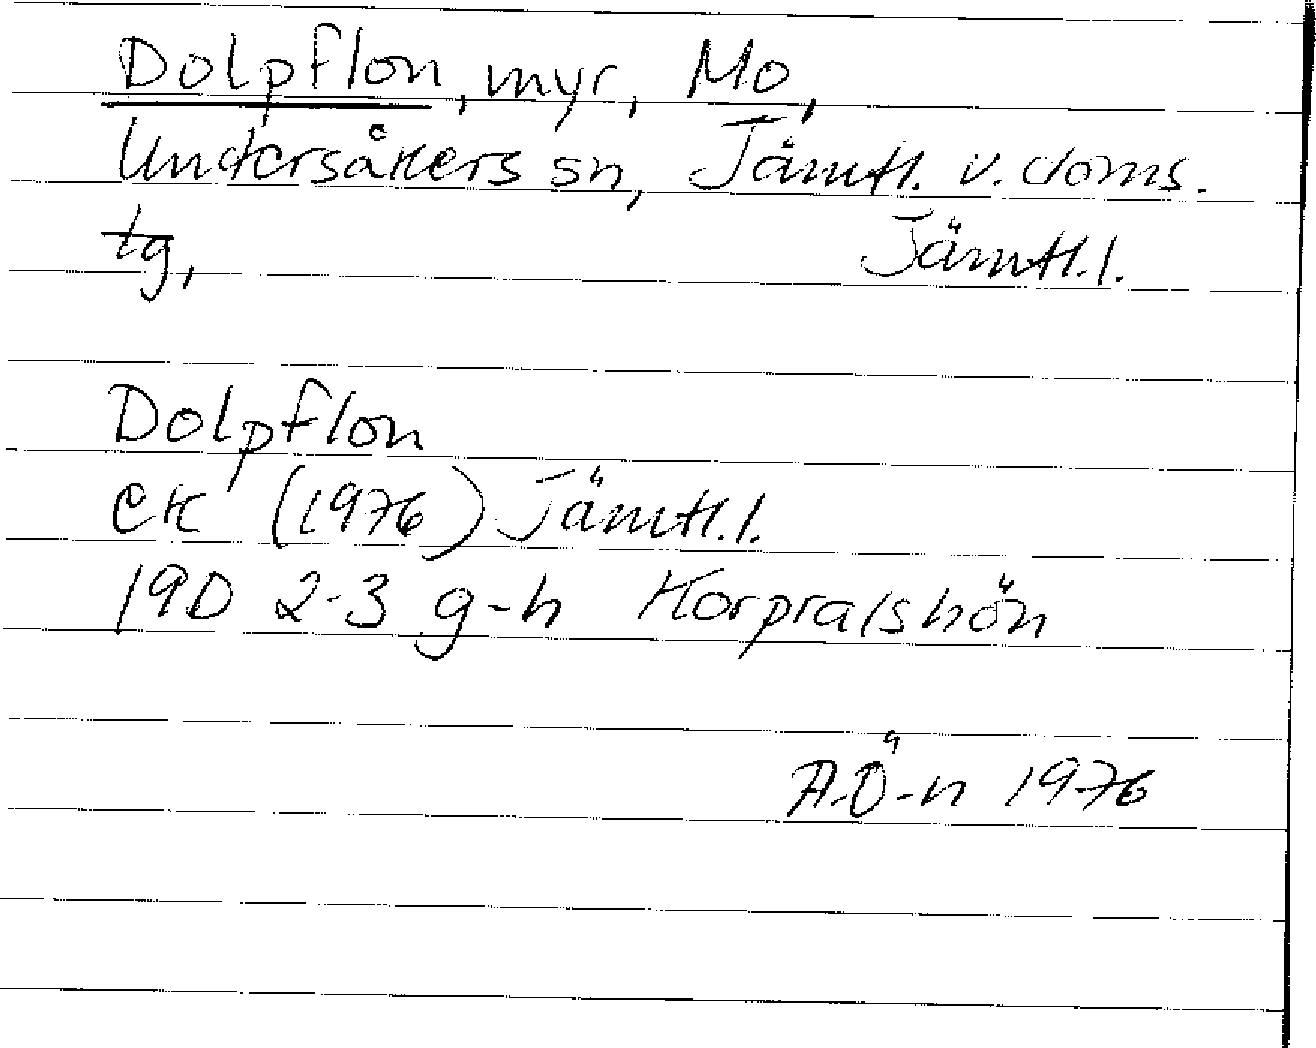 Dolpflon, myr, Mo,
Undersåkers sn, Jämtl. v. doms.
tg, Jämtl. l.
Dolpflon
EK (1976) Jämtl. l.
19D 2-3 g-h Korpralshön
A.Ö-n 1976